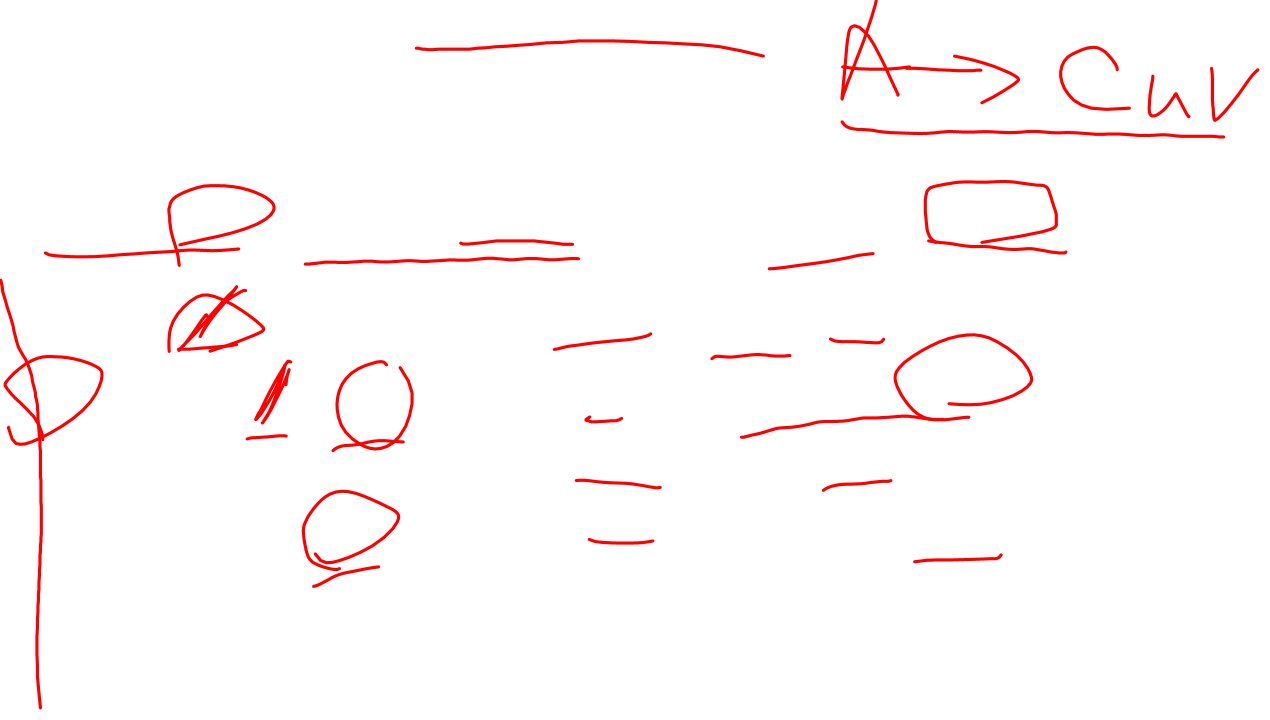 A → CuV